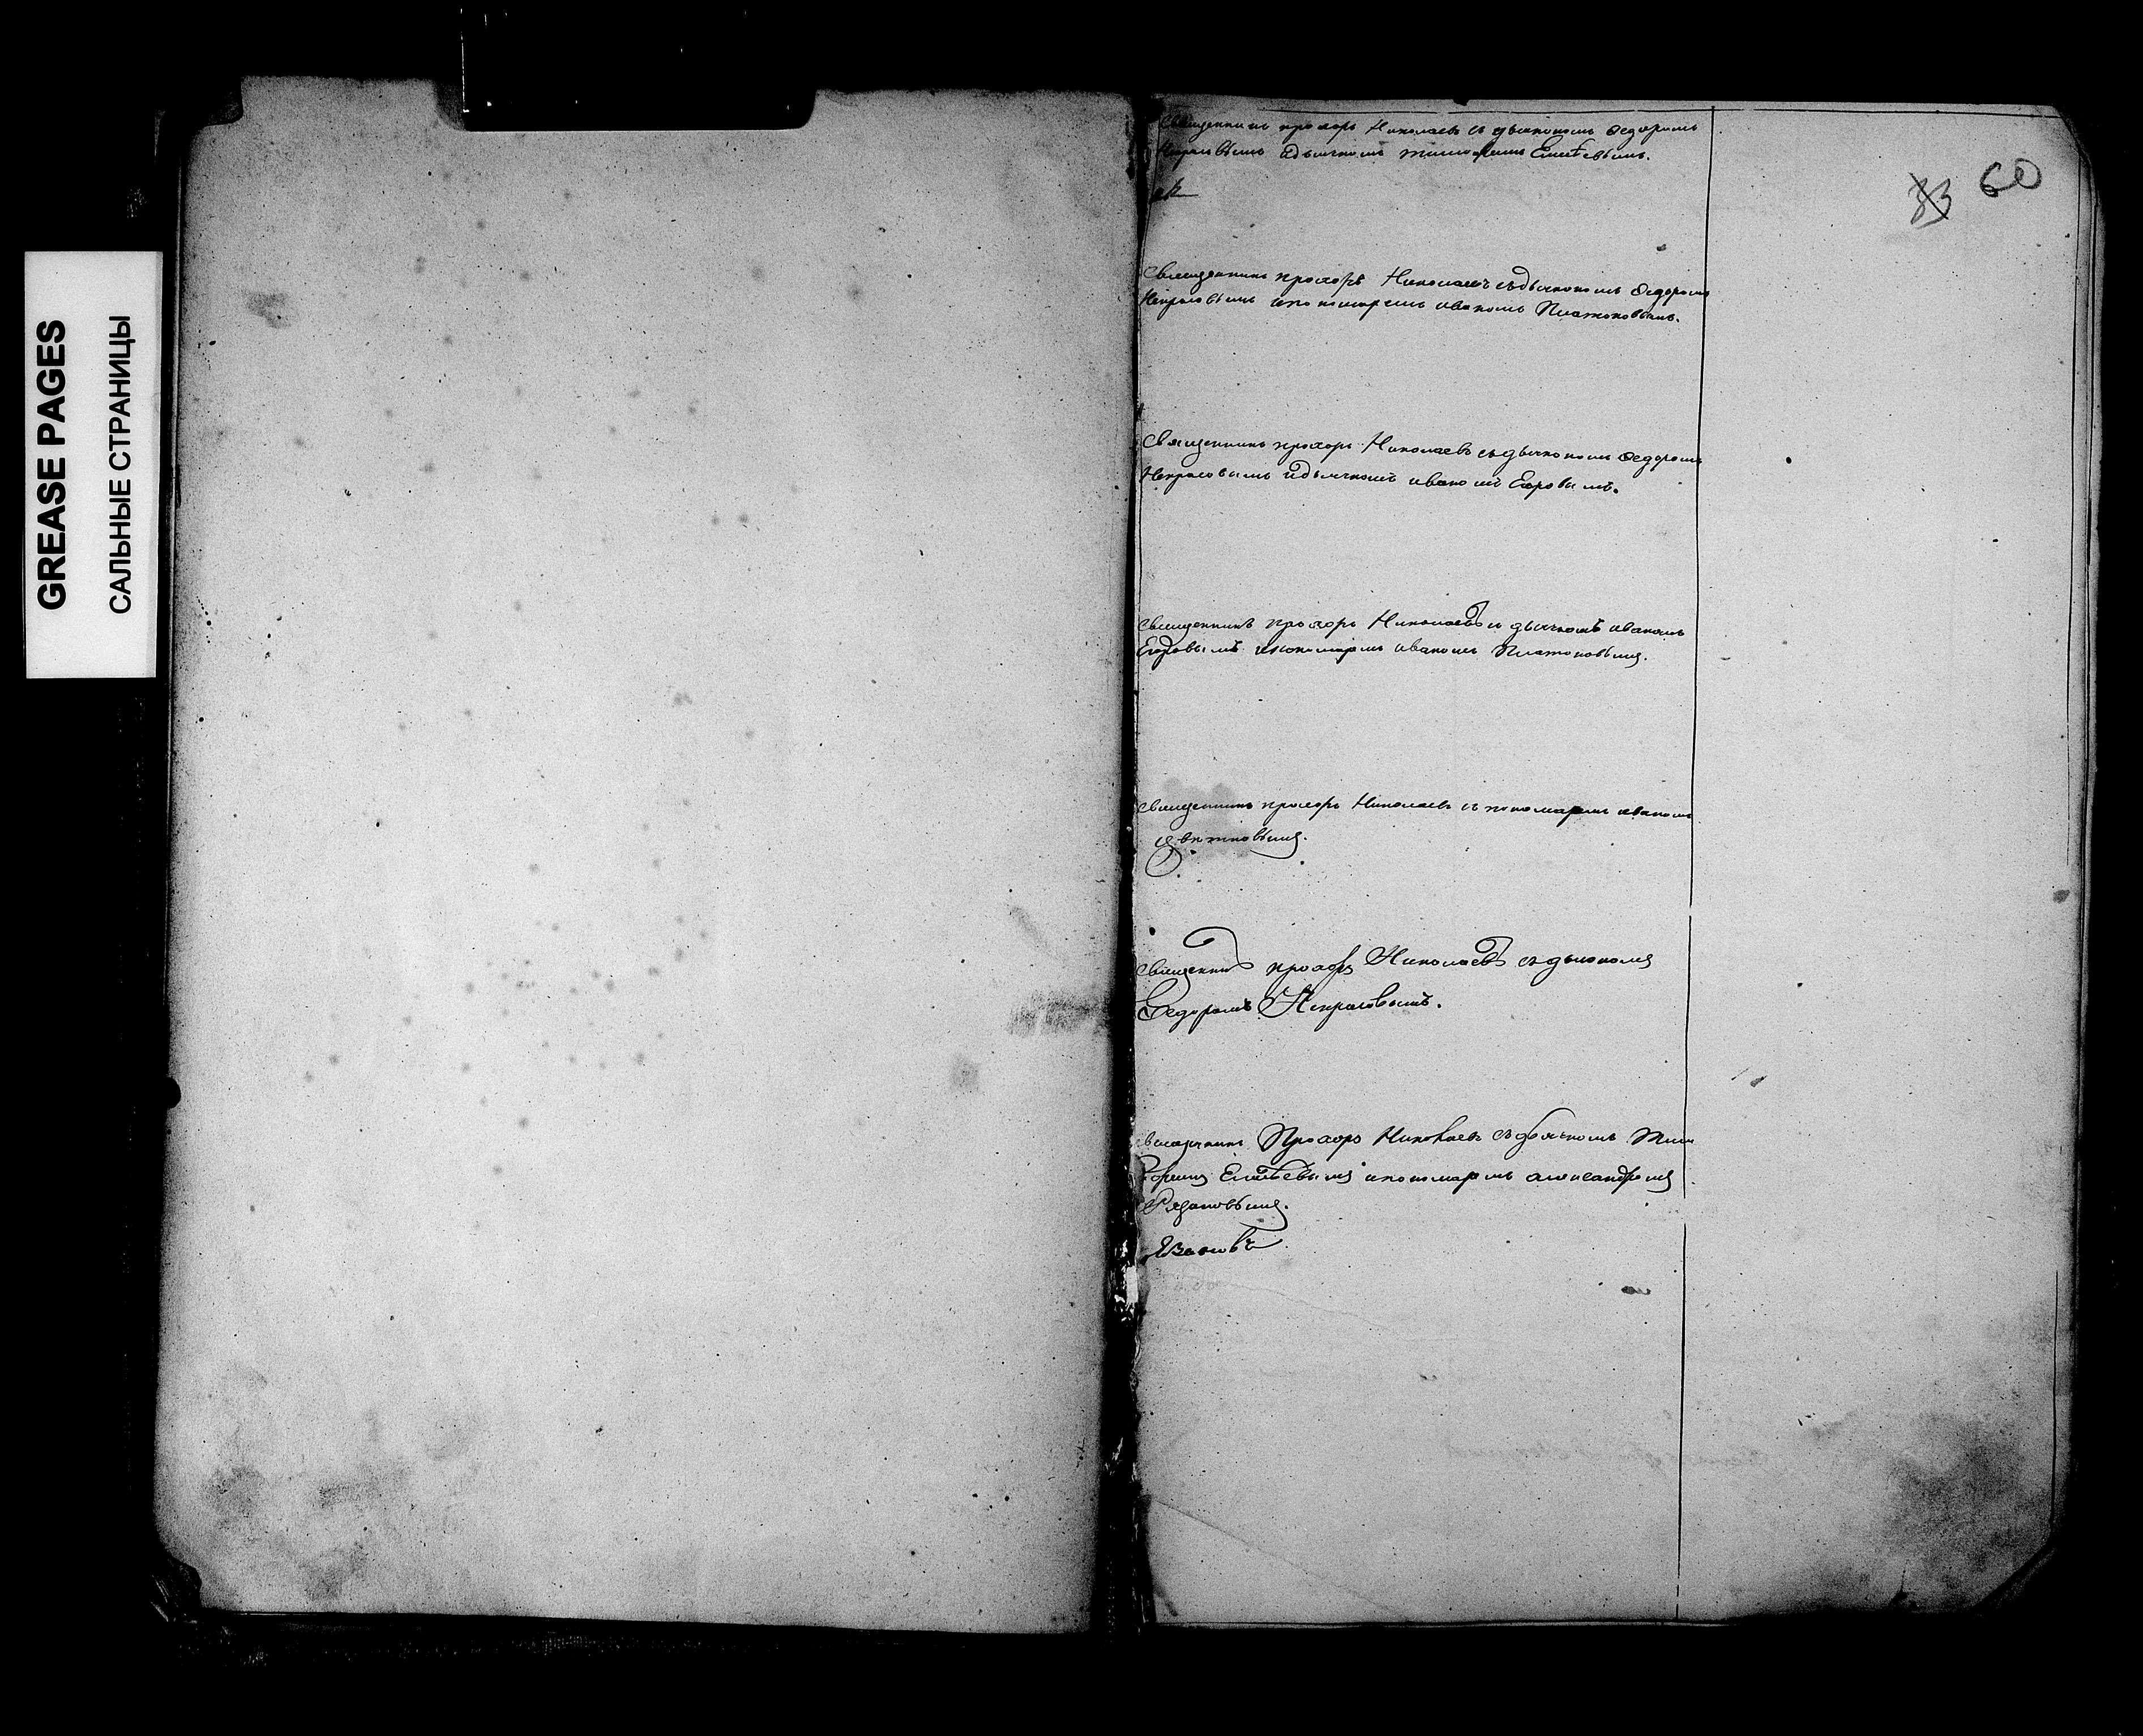 GREASE PAGES
САЛЬНЫЕ СТРАНИЦЫ
Священникъ прохоръ Николаевъ съ дьякономъ Ѳедоромъ
Некрасовымъ идьячкомъ тимофеемъ Елисѣевымъ.
83 60
Священникъ прохоръ Николаевъ съдьякономъ Ѳедоромъ
Некрасовымъ ипономаремъ иваномъ Платоновымъ.
Священникъ прохоръ Николаевъ съдьякономъ Ѳедоромъ
Некрасовымъ идьячкомъ иваномъ Егоровымъ.
Священникъ прохоръ Николаевъ съ дьячкомъ иваномъ
Егоровымъ ипономаремъ иваномъ Платоновымъ.
Священникъ прохоръ Николаевъ съ пономаремъ иваномъ
Священникъ прохоръ Николаевъ съдьякономъ
Ѳедоромъ Некрасовымъ.
Священникъ Прохоръ Николаевъ съдьячкомъ Тим
офеемъ Елисѣевымъ ипономаремъ александромъ